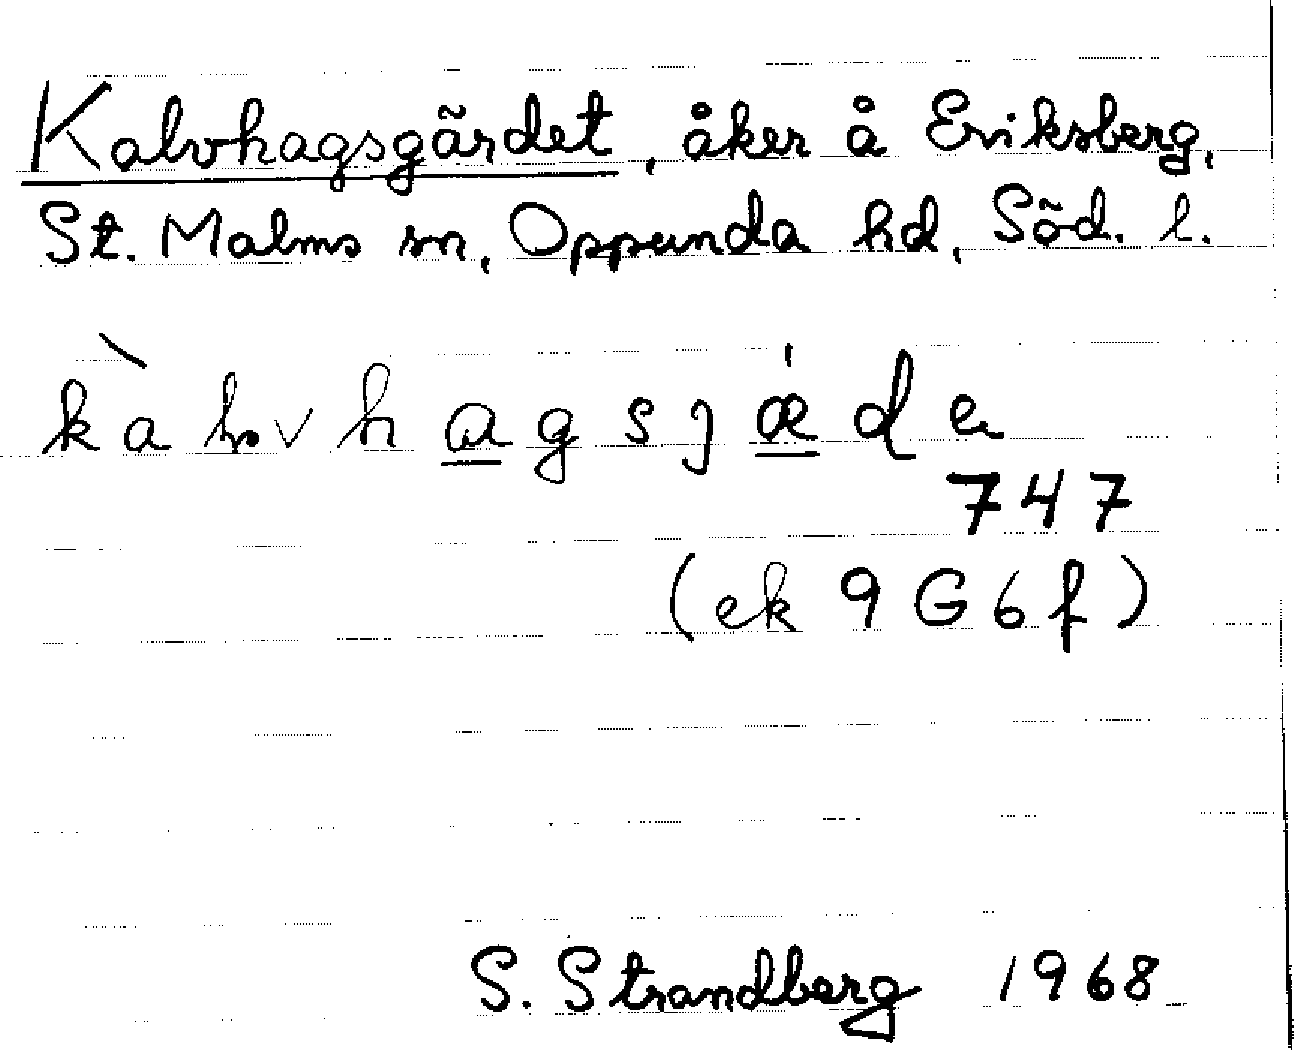 Kalvhagsgärdet, åker å Eriksberg,
St. Malms sn, Oppunda hd, Söd. l.
kàɭvhagsjæ̀de
747
(ek 9G6f)
S. Strandberg 1968